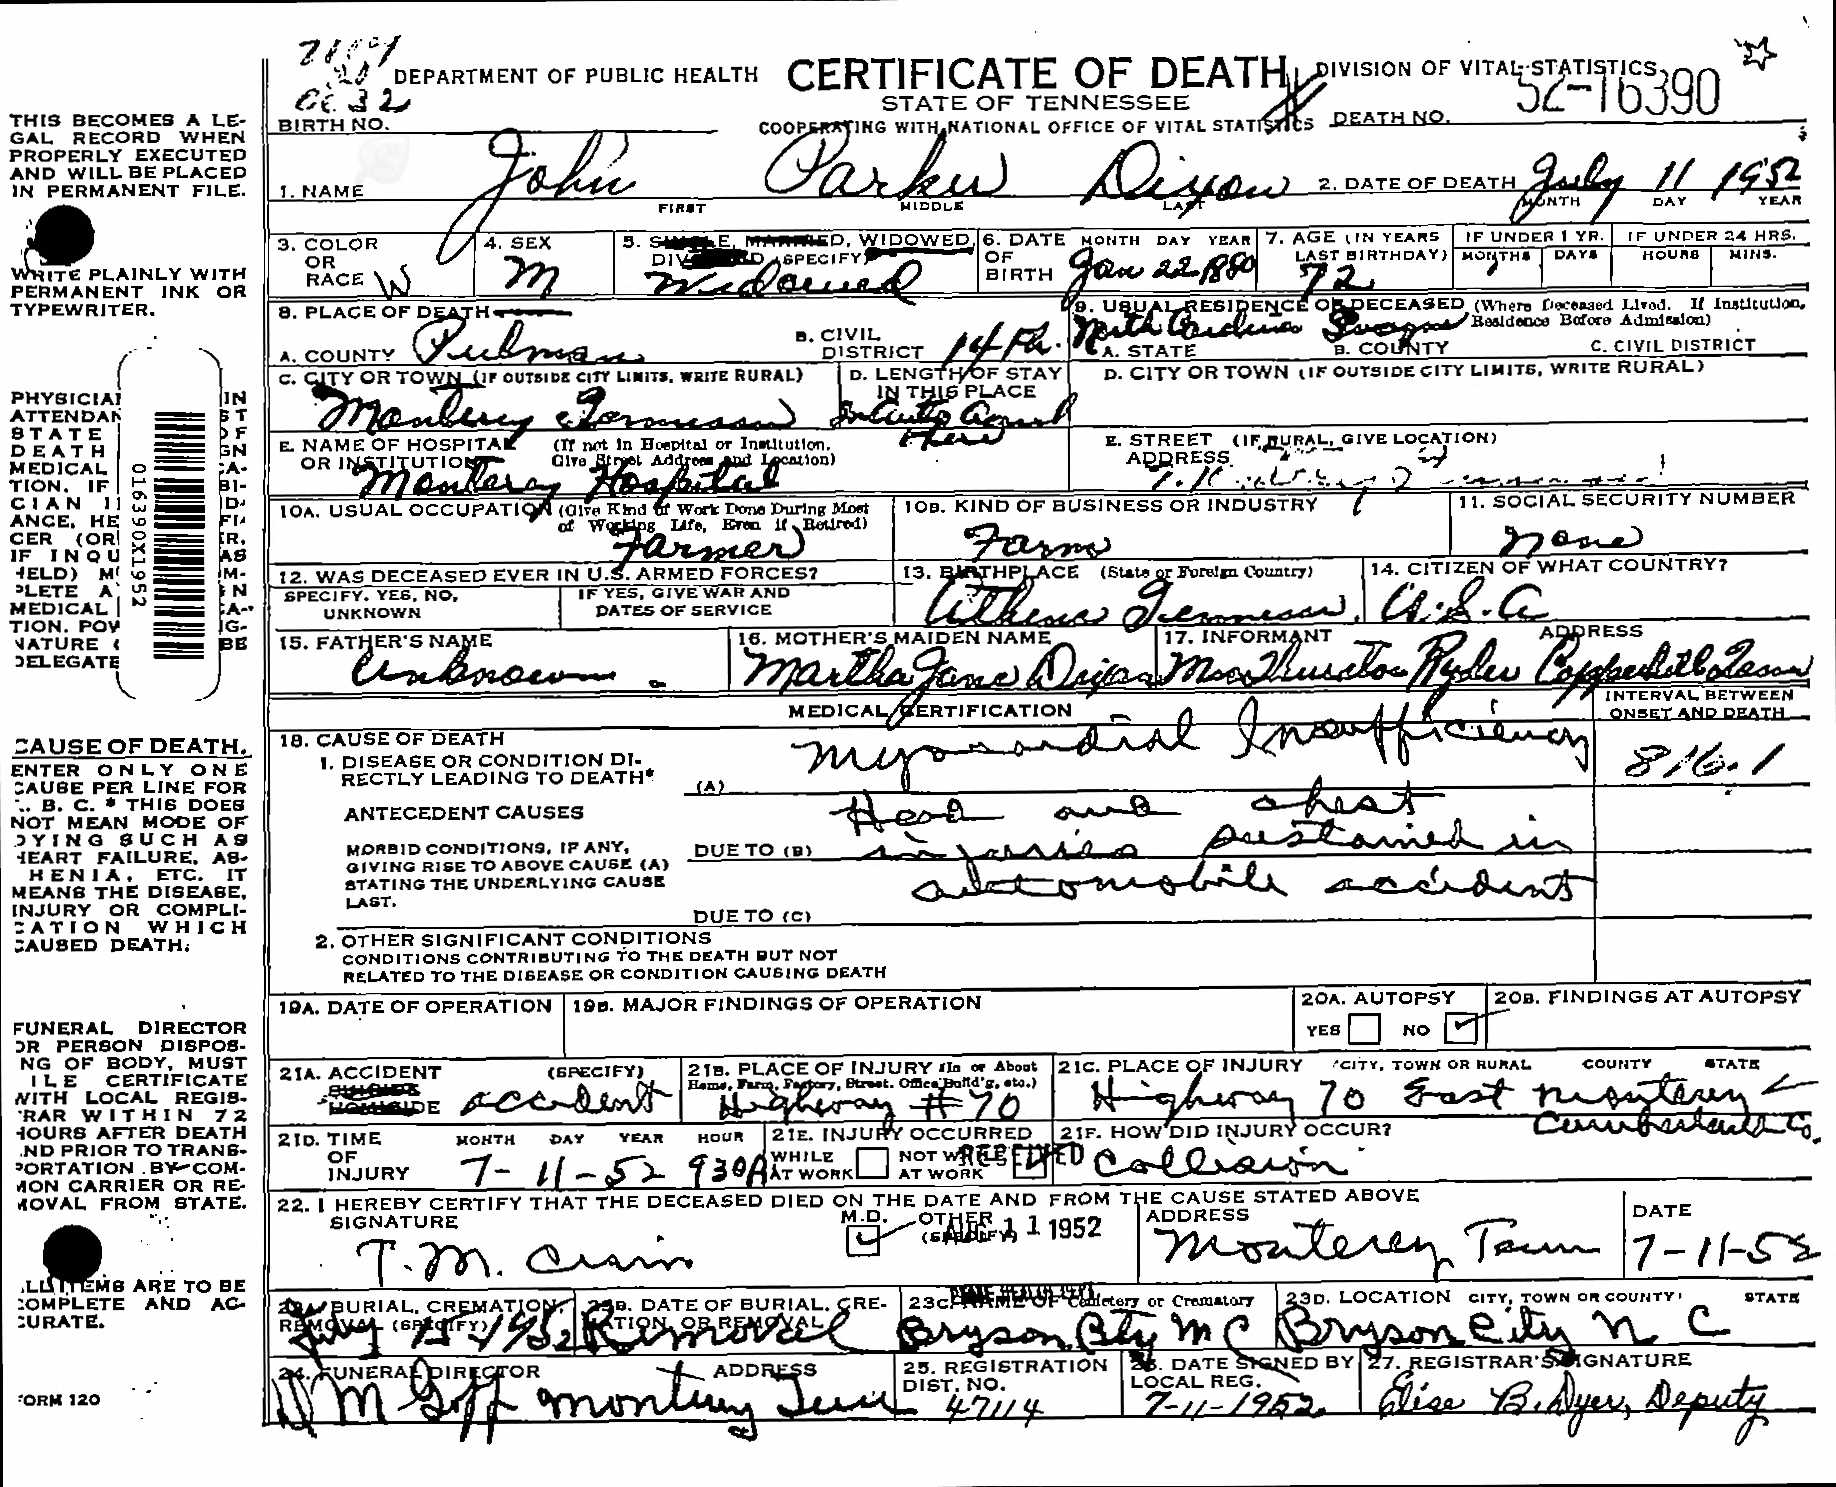 DEPARTMENT OF PUBLIC HEALTH CERTIFICATE OF DEATH DIVISION OF VITAL STATISTICS
STATE OF TENNESSEE
52-16390
BIRTH NO. COOPERATING WITH NATIONAL OFFICE OF VITAL STATISTICS DEATH NO.
THIS BECOMES A LE-
GAL RECORD WHEN
PROPERLY EXECUTED
AND WILL BE PLACED
IN PERMANENT FILE.
WRITE PLAINLY WITH
PERMANENT INK OR
TYPEWRITER.
1. NAME John Parker Dixon 2. DATE OF DEATH July 11 1952
FIRST MIDDLE LAST MONTH DAY YEAR
3. COLOR OR RACE W
4. SEX M
5. SINGLE, MARRIED, WIDOWED, DIVORCED (SPECIFY) Widowed
6. DATE OF BIRTH MONTH DAY YEAR Jan 22 1880
7. AGE (IN YEARS LAST BIRTHDAY) 72
IF UNDER 1 YR. MONTHS DAYS
IF UNDER 24 HRS. HOURS MINS.
8. PLACE OF DEATH
A. COUNTY Putman
B. CIVIL DISTRICT 14th.
9. USUAL RESIDENCE OF DECEASED (Where Deceased Lived. If Institution, Residence Before Admission)
North Carolina
A. STATE B. COUNTY C. CIVIL DISTRICT
C. CITY OR TOWN (IF OUTSIDE CITY LIMITS, WRITE RURAL)
Monterey Tennessee
D. LENGTH OF STAY IN THIS PLACE
here
D. CITY OR TOWN (IF OUTSIDE CITY LIMITS, WRITE RURAL)
E. NAME OF HOSPITAL OR INSTITUTION (If not in Hospital or Institution, Give Street Address and Location)
Monterey Hospital
E. STREET ADDRESS (IF RURAL, GIVE LOCATION)
10A. USUAL OCCUPATION (Give Kind of Work Done During Most of Working Life, Even if Retired)
Farmer
10B. KIND OF BUSINESS OR INDUSTRY
Farm
11. SOCIAL SECURITY NUMBER
None
12. WAS DECEASED EVER IN U.S. ARMED FORCES?
SPECIFY, YES, NO, UNKNOWN
IF YES, GIVE WAR AND DATES OF SERVICE
13. BIRTHPLACE (State or Foreign Country)
Athens Tennessee
14. CITIZEN OF WHAT COUNTRY?
U.S.A
15. FATHER'S NAME
Unknown
16. MOTHER'S MAIDEN NAME
Martha Jane Dixon
17. INFORMANT ADDRESS
Ryder Copperhill Tenn
01639 0X1952
MEDICAL CERTIFICATION
INTERVAL BETWEEN ONSET AND DEATH
816.1
18. CAUSE OF DEATH
1. DISEASE OR CONDITION DI-
RECTLY LEADING TO DEATH*
(A) Myocardial Insufficiency
ANTECEDENT CAUSES
MORBID CONDITIONS, IF ANY,
GIVING RISE TO ABOVE CAUSE (A)
STATING THE UNDERLYING CAUSE
LAST.
Head and chest
DUE TO (B) injuries sustained in
automobile accident
DUE TO (C)
2. OTHER SIGNIFICANT CONDITIONS
CONDITIONS CONTRIBUTING TO THE DEATH BUT NOT
RELATED TO THE DISEASE OR CONDITION CAUSING DEATH
CAUSE OF DEATH.
ENTER ONLY ONE
CAUSE PER LINE FOR
B. C. * THIS DOES
NOT MEAN MODE OF
DYING SUCH AS
HEART FAILURE, AS-
HENIA, ETC. IT
MEANS THE DISEASE,
INJURY OR COMPLI-
CATION WHICH
CAUSED DEATH.
19A. DATE OF OPERATION
19B. MAJOR FINDINGS OF OPERATION
20A. AUTOPSY YES NO
20B. FINDINGS AT AUTOPSY
21A. ACCIDENT SUICIDE HOMICIDE (SPECIFY) accident
21B. PLACE OF INJURY (In or About Home, Farm, Factory, Street, Office Build'g, etc.)
Highway #70
21C. PLACE OF INJURY (CITY, TOWN OR RURAL COUNTY STATE
Highway 70 East Monterey
Cumberland Co.
21D. TIME OF INJURY MONTH DAY YEAR HOUR
7-11-52 930A
21E. INJURY OCCURRED
WHILE AT WORK NOT WHILE AT WORK
RECEIVED
21F. HOW DID INJURY OCCUR?
Collision
22. I HEREBY CERTIFY THAT THE DECEASED DIED ON THE DATE AND FROM THE CAUSE STATED ABOVE
SIGNATURE M.D. OTHER (SPECIFY) ADDRESS DATE
AUG 11 1952
T. M. Crain Monterey, Tenn 7-11-52
23A. BURIAL, CREMATION, REMOVAL (SPECIFY)
July 15-1952
23B. DATE OF BURIAL, CRE-
ATION, OR REMOVAL
Removal
23C. NAME OF Cemetery or Crematory
Bryson City N C
23D. LOCATION CITY, TOWN OR COUNTY STATE
Bryson City N C
24. FUNERAL DIRECTOR ADDRESS
M Goff Monterey Tenn
25. REGISTRATION DIST. NO.
47114
26. DATE SIGNED BY LOCAL REG.
7-11-1952
27. REGISTRAR'S SIGNATURE
Elise B. Dyer, Deputy
FUNERAL DIRECTOR
OR PERSON DISPOS-
NG OF BODY, MUST
ILE CERTIFICATE
WITH LOCAL REGIS-
TRAR WITHIN 72
HOURS AFTER DEATH
ND PRIOR TO TRANS-
PORTATION BY COM-
MON CARRIER OR RE-
MOVAL FROM STATE.
ALL ITEMS ARE TO BE
COMPLETE AND AC-
CURATE.
FORM 120